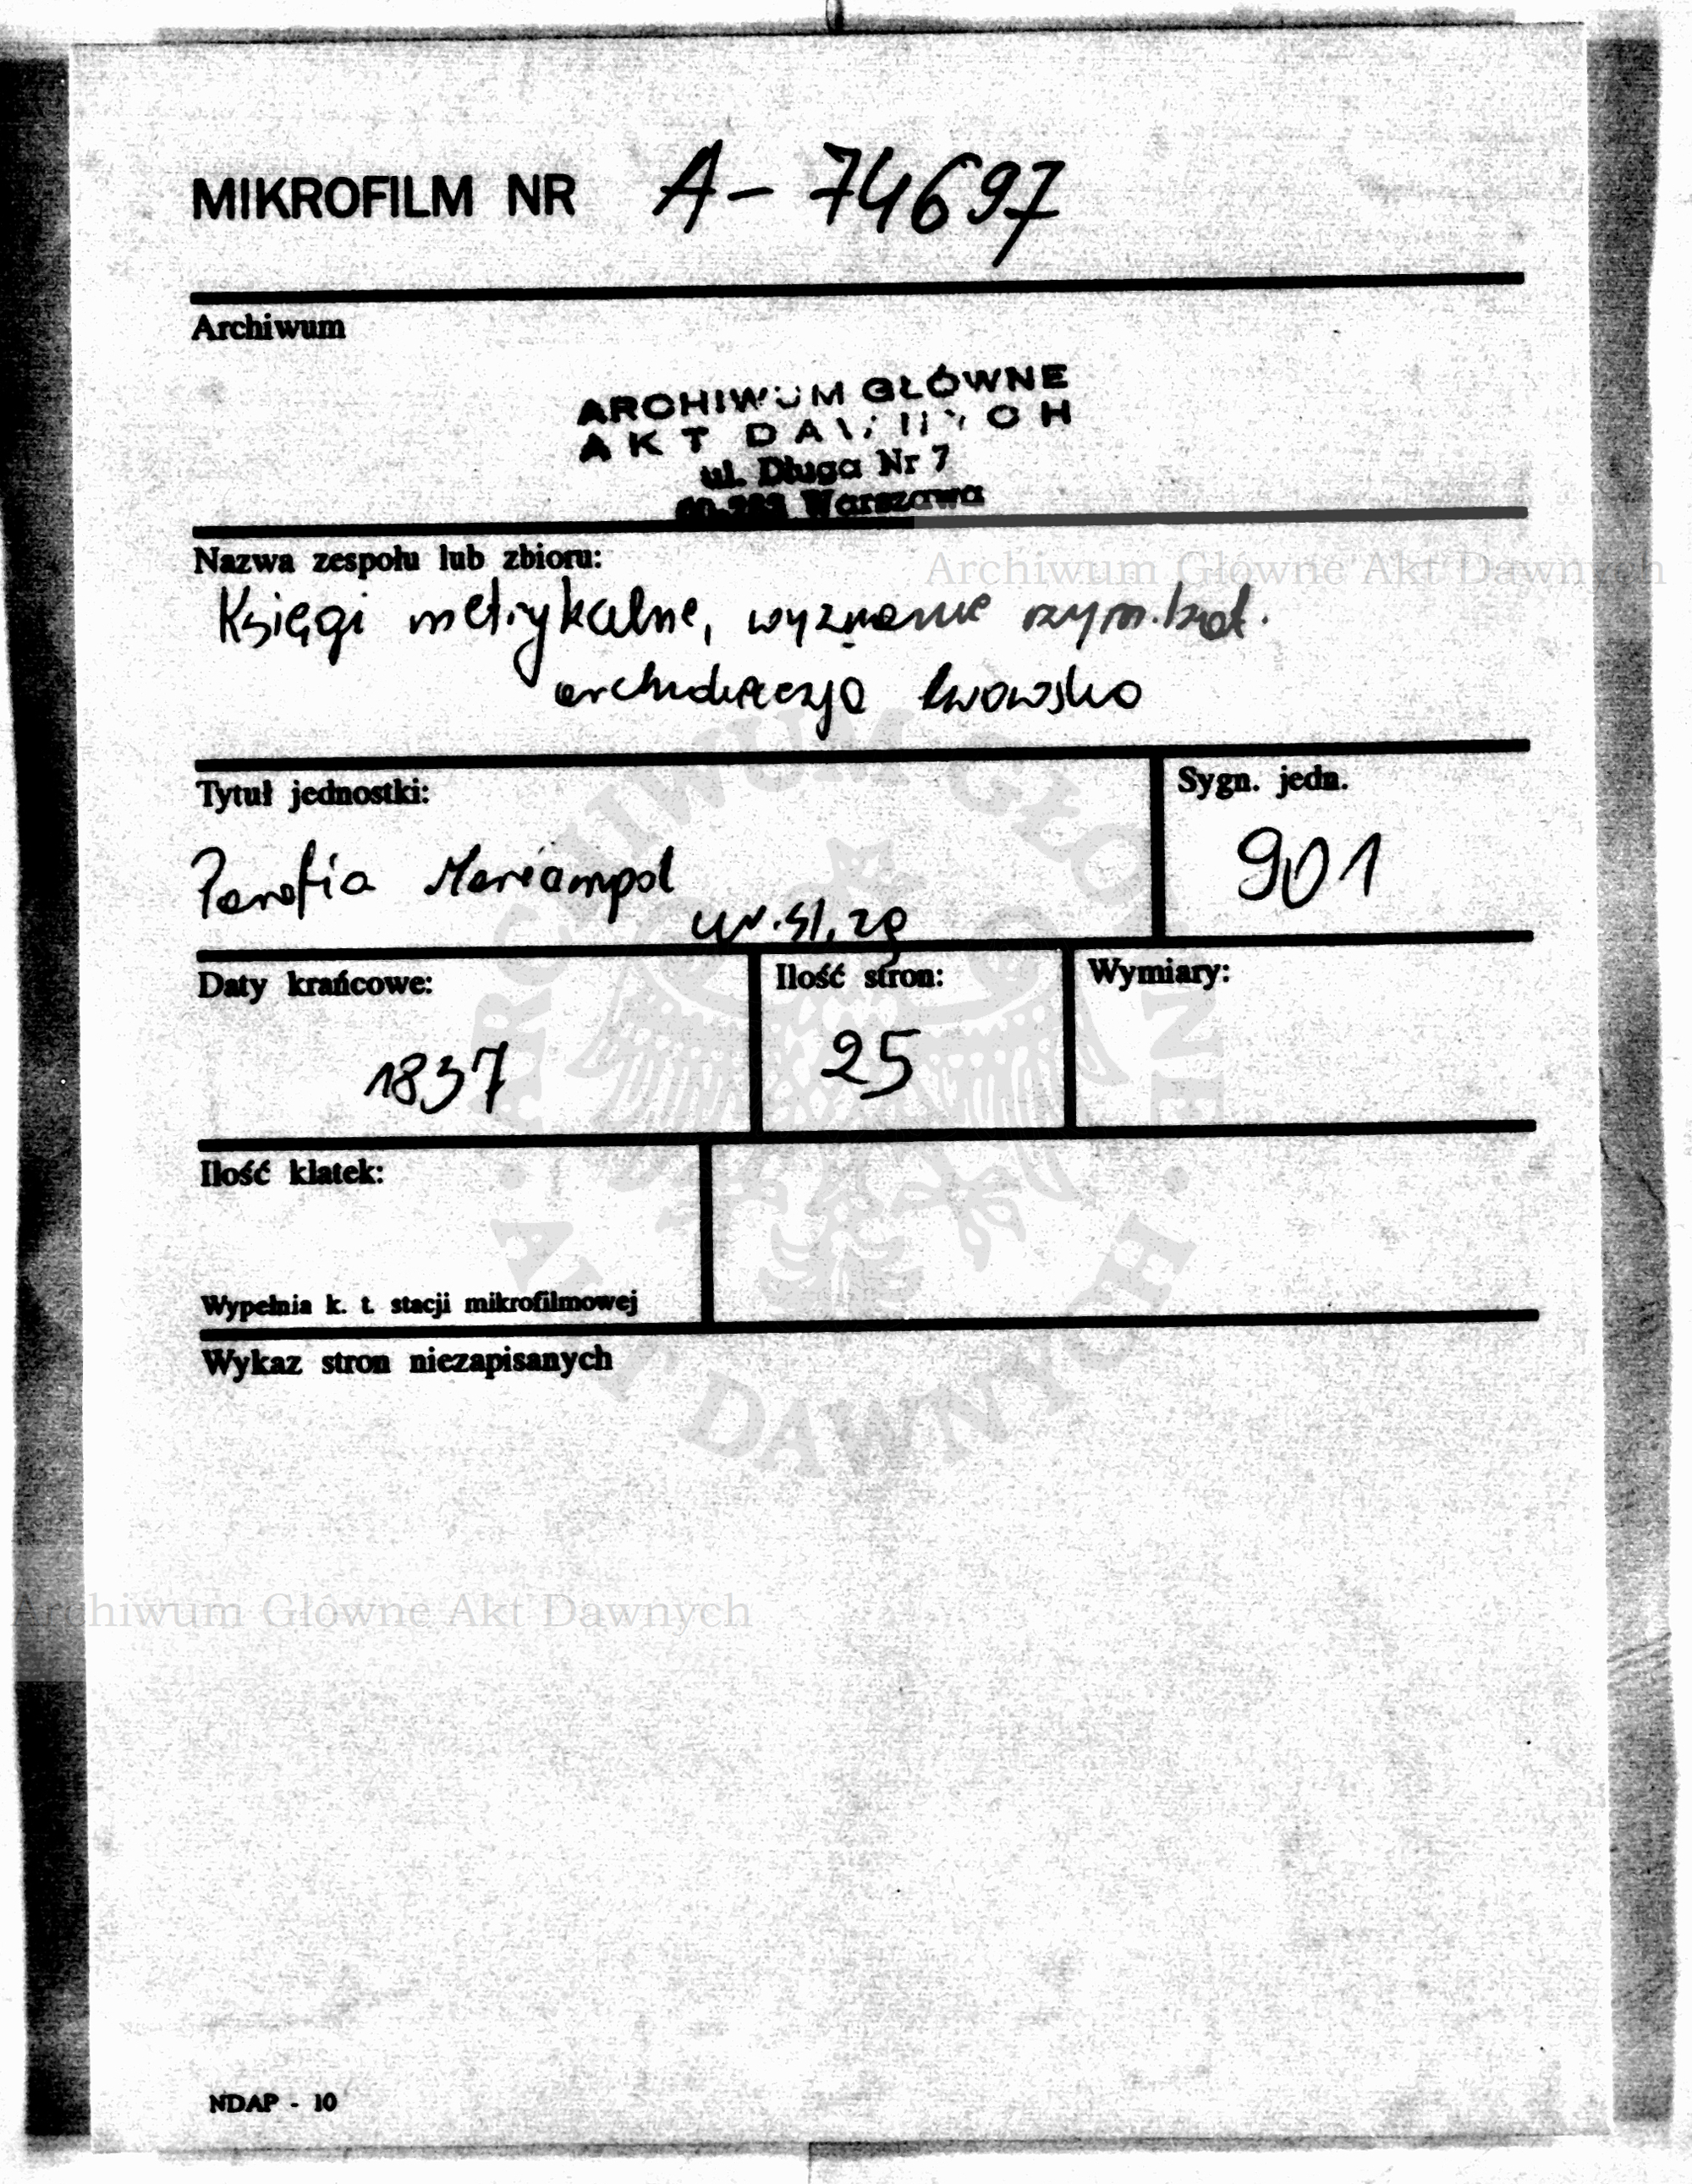 MIKROFILM NR A-74697
Archiwum
ARCHIWUM GŁÓWNE
AKT DAWNYCH
ul. Długa Nr 7
Warszawa
Nazwa zespołu lub zbioru:
Archiwum Główne Akt Dawnych
Księgi metrykalne, wyznanie rzym.kat.
archidiecezja lwowska
Tytuł jednostki:
Sygn. jedn.
Parafia Mariampol
901
ur. śl. zg
Daty krańcowe:
Ilość stron:
Wymiary:
1837
25
Ilość klatek:
Wypełnia k. t. stacji mikrofilmowej
Wykaz stron niezapisanych
ARCHIWUM GŁÓWNE · AKT DAWNYCH ·
Archiwum Główne Akt Dawnych
NDAP - 10